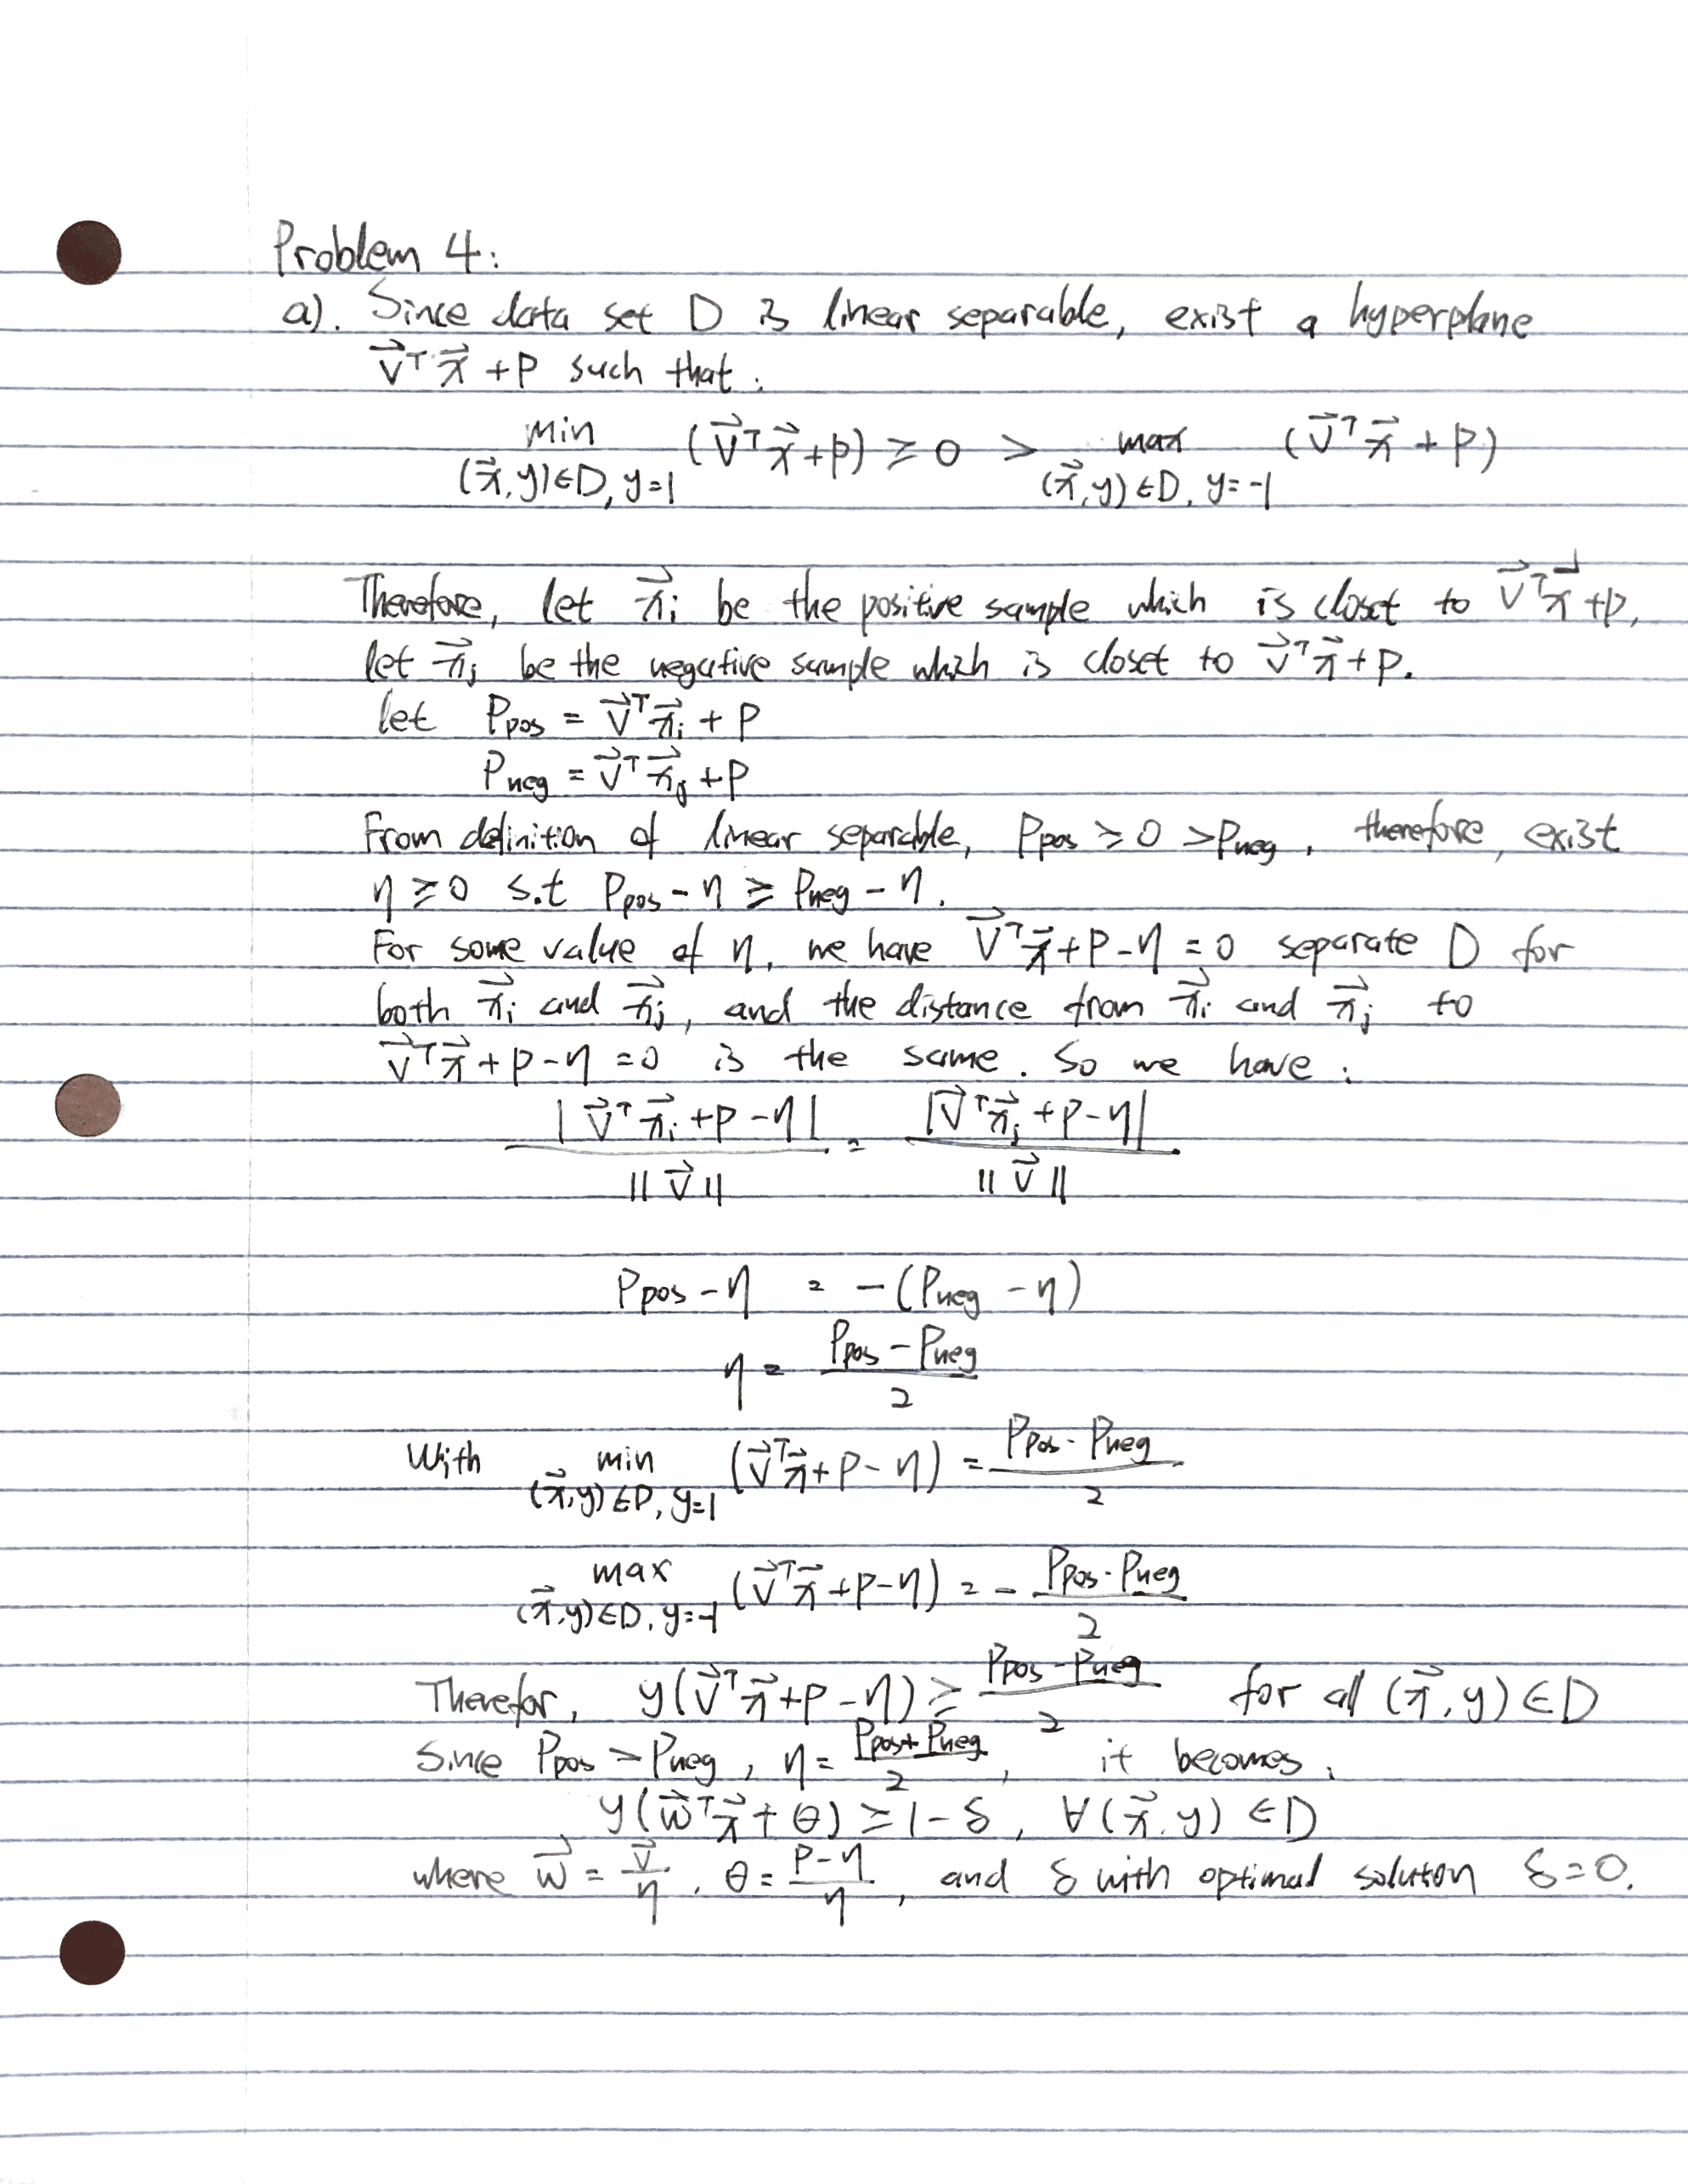 Problem 4:
a). Since data set D is linear separable, exist a hyperplane
v⃗ᵀx⃗ + p such that:
min (x⃗,y)∈D, y=1 (v⃗ᵀx⃗ + p) ≥ 0 > max (x⃗,y)∈D, y=-1 (v⃗ᵀx⃗ + p)
Therefore, let x⃗ᵢ be the positive sample which is closet to v⃗ᵀx⃗ + p,
let x⃗ⱼ be the negative sample which is closet to v⃗ᵀx⃗ + p.
let P_pos = v⃗ᵀx⃗ᵢ + p
P_neg = v⃗ᵀx⃗ⱼ + p
From definition of linear separable, P_pos ≥ 0 > P_neg, therefore, exist
η ≥ 0 s.t P_pos - η ≥ P_neg - η.
For some value of η, we have v⃗ᵀx⃗ + p - η = 0 separate D for
both x⃗ᵢ and x⃗ⱼ, and the distance from x⃗ᵢ and x⃗ⱼ to
v⃗ᵀx⃗ + p - η = 0 is the same. So we have:
|v⃗ᵀx⃗ᵢ + p - η| / ||v⃗|| = |v⃗ᵀx⃗ⱼ + p - η| / ||v⃗||
P_pos - η = -(P_neg - η)
η = (P_pos - P_neg) / 2
With min (x⃗,y)∈D, y=1 (v⃗ᵀx⃗ + p - η) = (P_pos - P_neg) / 2
max (x⃗,y)∈D, y=-1 (v⃗ᵀx⃗ + p - η) = - (P_pos - P_neg) / 2
Therefor, y(v⃗ᵀx⃗ + p - η) ≥ (P_pos - P_neg) / 2 for all (x⃗,y)∈D
Since P_pos > P_neg, η = (P_pos + P_neg) / 2, it becomes:
y(w⃗ᵀx⃗ + θ) ≥ 1 - δ, ∀(x⃗,y)∈D
where w⃗ = v⃗/η, θ = (p - η)/η, and δ with optimal soluton δ = 0.